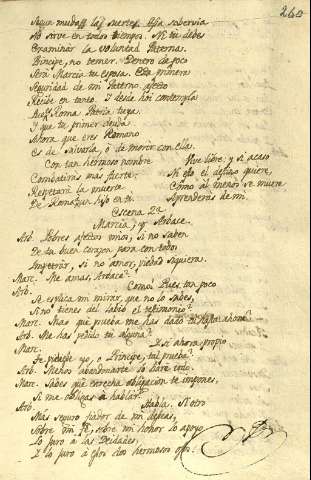 260
las suertes. Essa sobervia
No sirve en todos tiempos. Ni tu debes
Examinar la voluntad Paterna.
Principe, no temer. Dentro de poco
Sera Marcia tu esposa. Esta primera
Seguridad de mi Paterno afecto
Recibe en tanto. I desde hoi contempla
Roma Patria tuya
I que tu primer deuda
Ahora que eres Romano
Es de salvarla, ò de morir con ella.
Con tan hermoso nombre
Combatiras mas fuerte:
Respetarà la muerte
De Roma un hijo en ti.
Ve libre: y si acaso
Si esso el destino quiere,
Como al menos se muera
Aprenderàs de mi.
Escena 2a
Marcia, y Arbace.
Arb. Pobres afectos mios, si no saben
De tu buen corazon para con todos
Impetrar, si no amor, piedad siquiera.
Marc. Me amas, Arbace?
Arb. Como Pues tan poco
Se esplica mi mirar, que no lo sabes,
Si no tienes del labio el testimonio?
Marc. Mas què prueba me has dado ahora?
Arb. Me has pedido tu alguna?
Marc. I si ahora propio
Te pidiesse yo, o Principe, tal prueba?
Arb. Menos abandonarte lo harè todo.
Marc. Sabes què estrecha obligacion te impones,
Si me obligas à hablar?
Arb. Habla: Si otro
Mas seguro fiador de mi deseas,
Sobre mi fè, sobre mi honor lo apoyo,
Lo juro à las Deidades,
I lo juro à essos dos hermosos ojos.